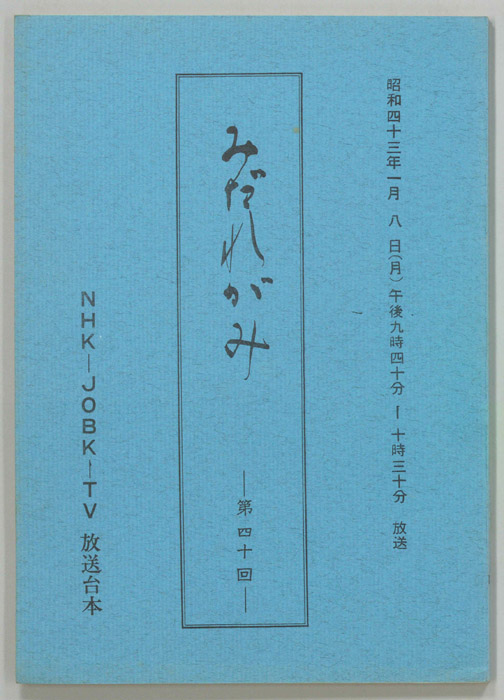 昭和四十三年一月 八 日(月)午後九時四十分ー十時三十分 放送
みだれがみ
―第四十回―
NHK―JOBK―TV 放送台本